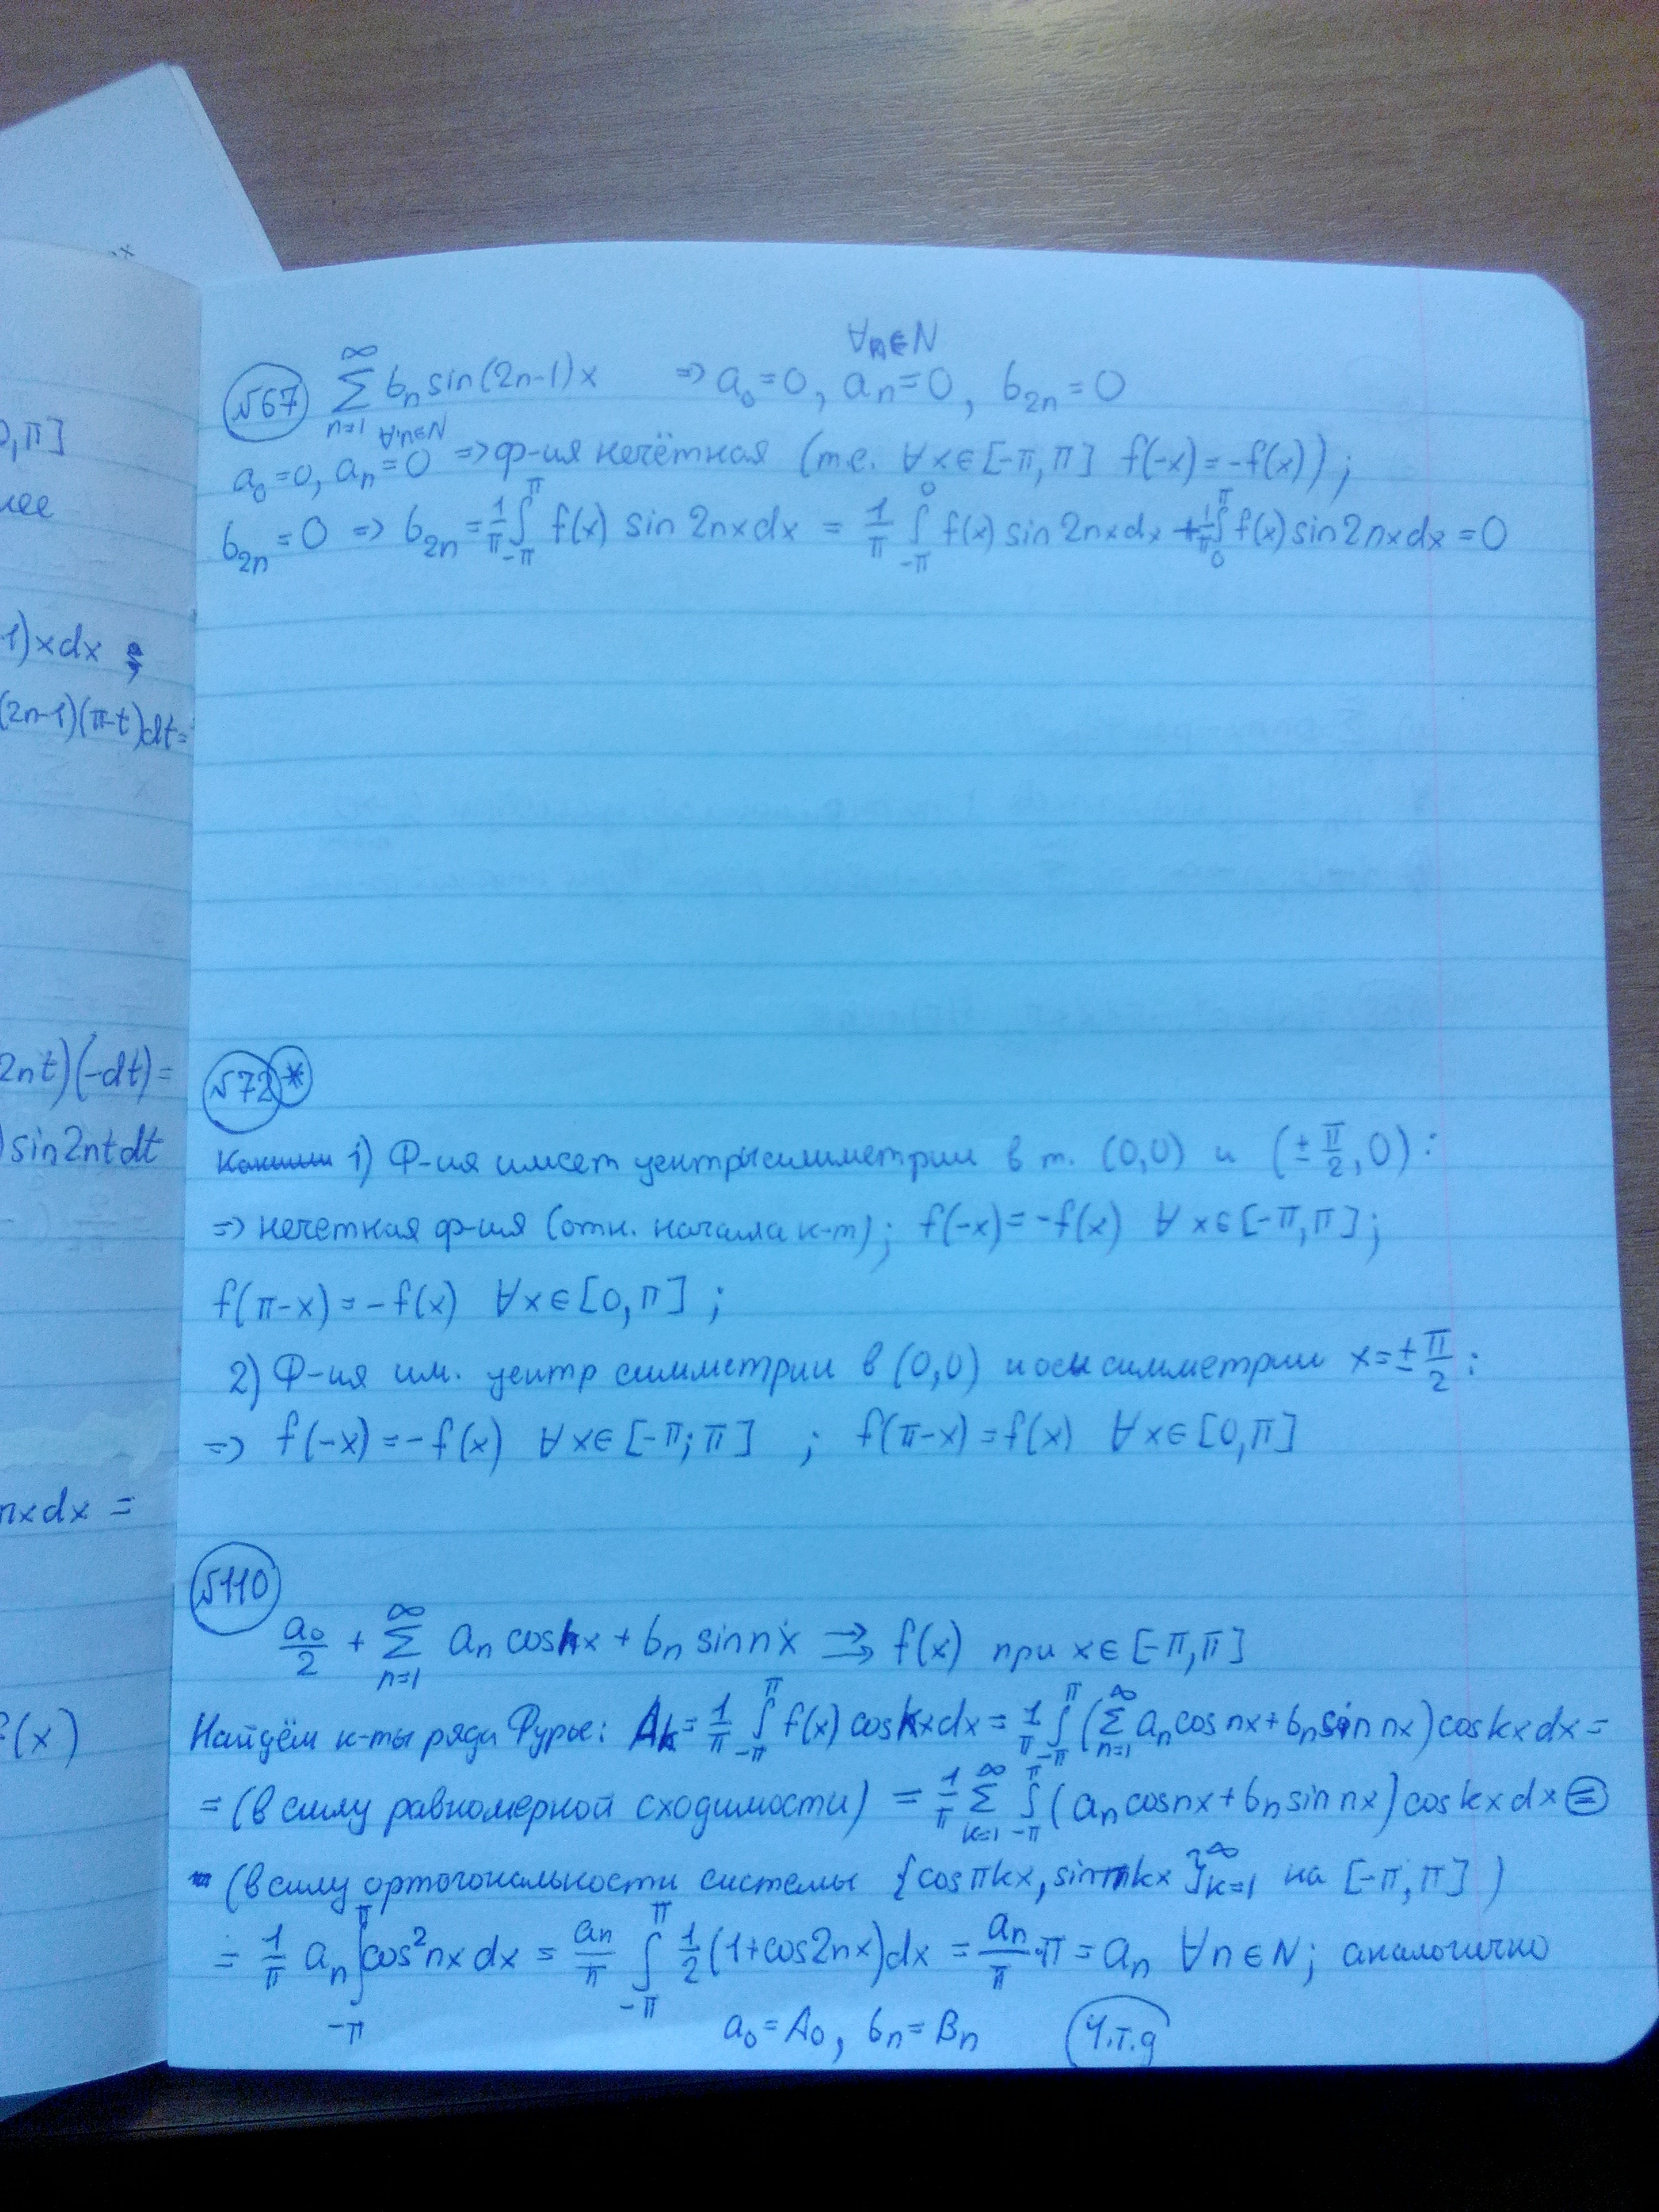 №67 ∞∑n=1 bn sin(2n-1)x => a0=0, an=0 ∀n∈N, b2n=0
a0=0, an=0 ∀n∈N => ф-ия нечётная (т.е. ∀x∈[-π,π] f(-x)=-f(x));
b2n=0 => b2n = 1/π ∫_{-π}^{π} f(x) sin 2nx dx = 1/π ∫_{-π}^{0} f(x) sin 2nx dx + 1/π ∫_{0}^{π} f(x) sin 2nx dx = 0
№72*
1) Ф-ия имеет центры симметрии в т. (0,0) и (±π/2, 0):
=> нечетная ф-ия (отн. начала к-т); f(-x)=-f(x) ∀x∈[-π,π];
f(π-x)=-f(x) ∀x∈[0,π];
2) Ф-ия им. центр симметрии в (0,0) и оси симметрии x=±π/2:
=> f(-x)=-f(x) ∀x∈[-π;π] ; f(π-x)=f(x) ∀x∈[0,π]
№110
a0/2 + ∞∑n=1 an cos nx + bn sin nx ⇉ f(x) при x∈[-π,π]
Найдём к-ты ряда Фурье: Ak = 1/π ∫_{-π}^{π} f(x) cos kx dx = 1/π ∫_{-π}^{π} (∞∑n=1 an cos nx + bn sin nx) cos kx dx =
= (в силу равномерной сходимости) = 1/π ∞∑k=1 ∫_{-π}^{π} (an cos nx + bn sin nx) cos kx dx =
(в силу ортогональности системы {cos πkx, sin πkx}∞k=1 на [-π,π])
= 1/π an ∫_{-π}^{π} cos²nx dx = an/π ∫_{-π}^{π} 1/2 (1+cos2nx)dx = an/π · π = an ∀n∈N; аналогично
a0=A0, bn=Bn Ч.т.д
0,π]
нее
-1)xdx ;
(2n-1)(π-t)dt=
2nt)(-dt)=
) sin2ntdt
nxdx =
(x)